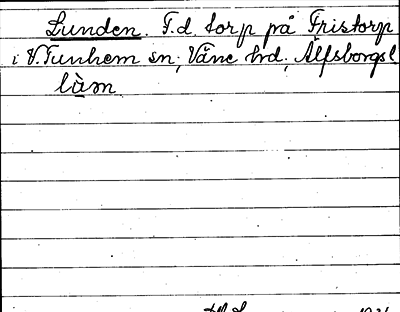 Lunden. F.d. torp på Fristorp
i V. Tunhem sn, Väne hrd, Älfsborgs l
län